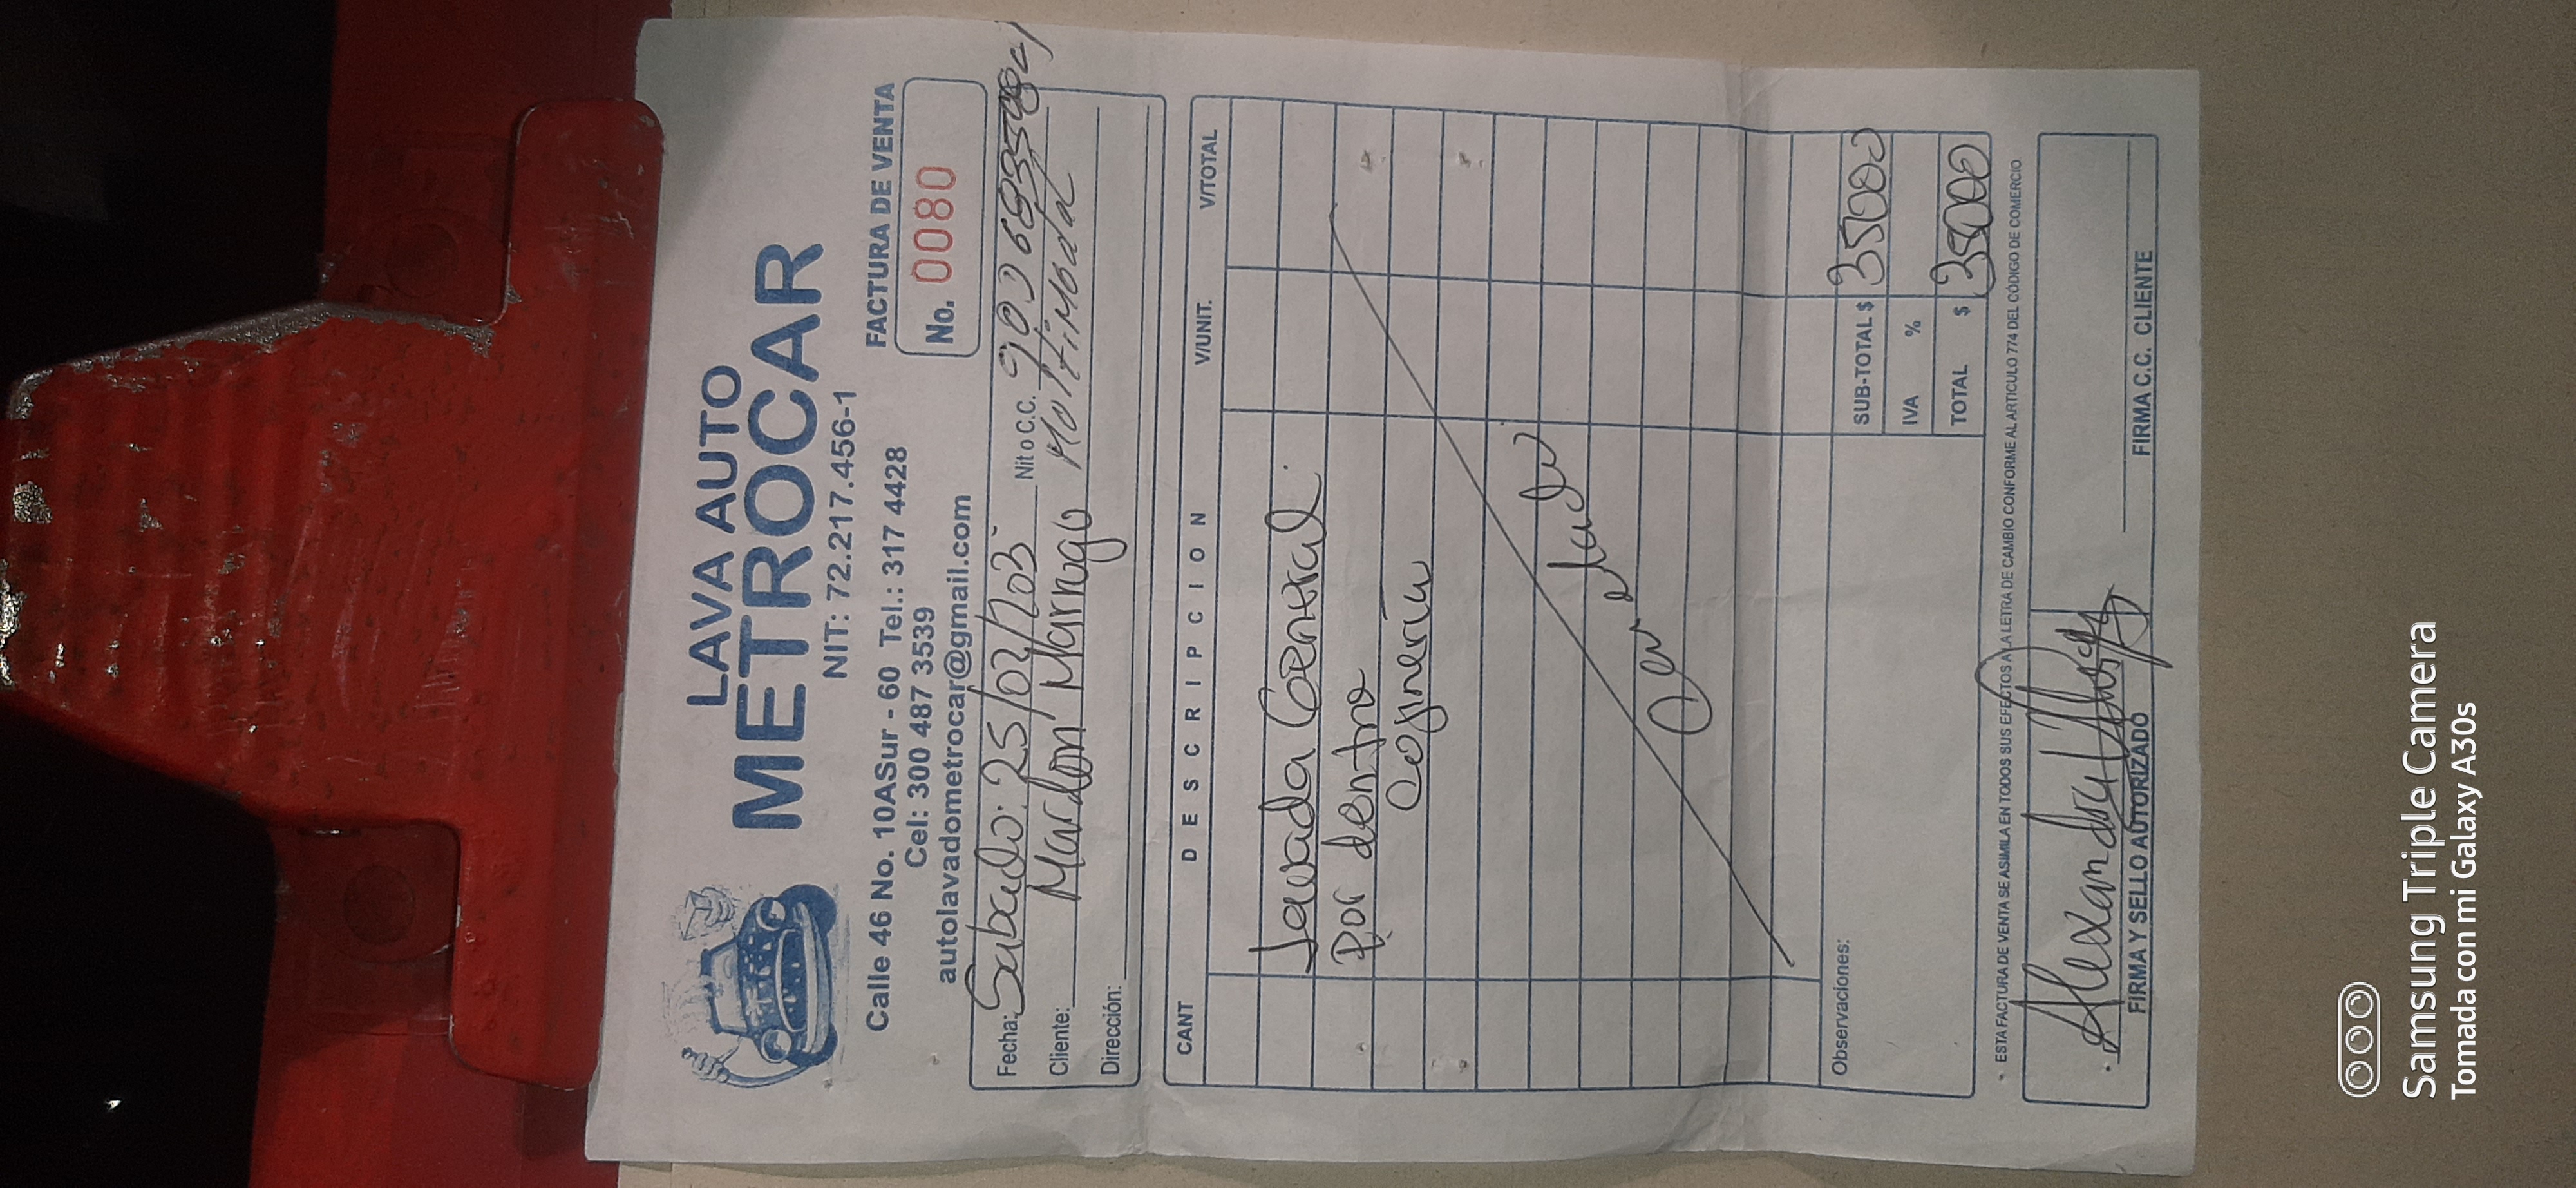 LAVA AUTO
METROCAR
NIT: 72.217.456-1
Calle 46 No. 10ASur - 60 Tel.: 317 4428
Cel: 300 487 3539
autolavadometrocar@gmail.com
FACTURA DE VENTA
No. 0080
Fecha: Sabado: 25/02/203 Nit o C.C.
Cliente: Marlon Marrugo Motimodal
Dirección:
CANT DESCRIPCION V/UNIT. V/TOTAL
Lavada General.
Por dentro
Cojineria
Observaciones:
SUB-TOTAL $ 35000
IVA %
TOTAL $ 35000
• ESTA FACTURA DE VENTA SE ASIMILA EN TODOS SUS EFECTOS A LA LETRA DE CAMBIO CONFORME AL ARTICULO 774 DEL CÓDIGO DE COMERCIO
Alexandra
FIRMA Y SELLO AUTORIZADO
FIRMA C.C. CLIENTE
Samsung Triple Camera
Tomada con mi Galaxy A30s